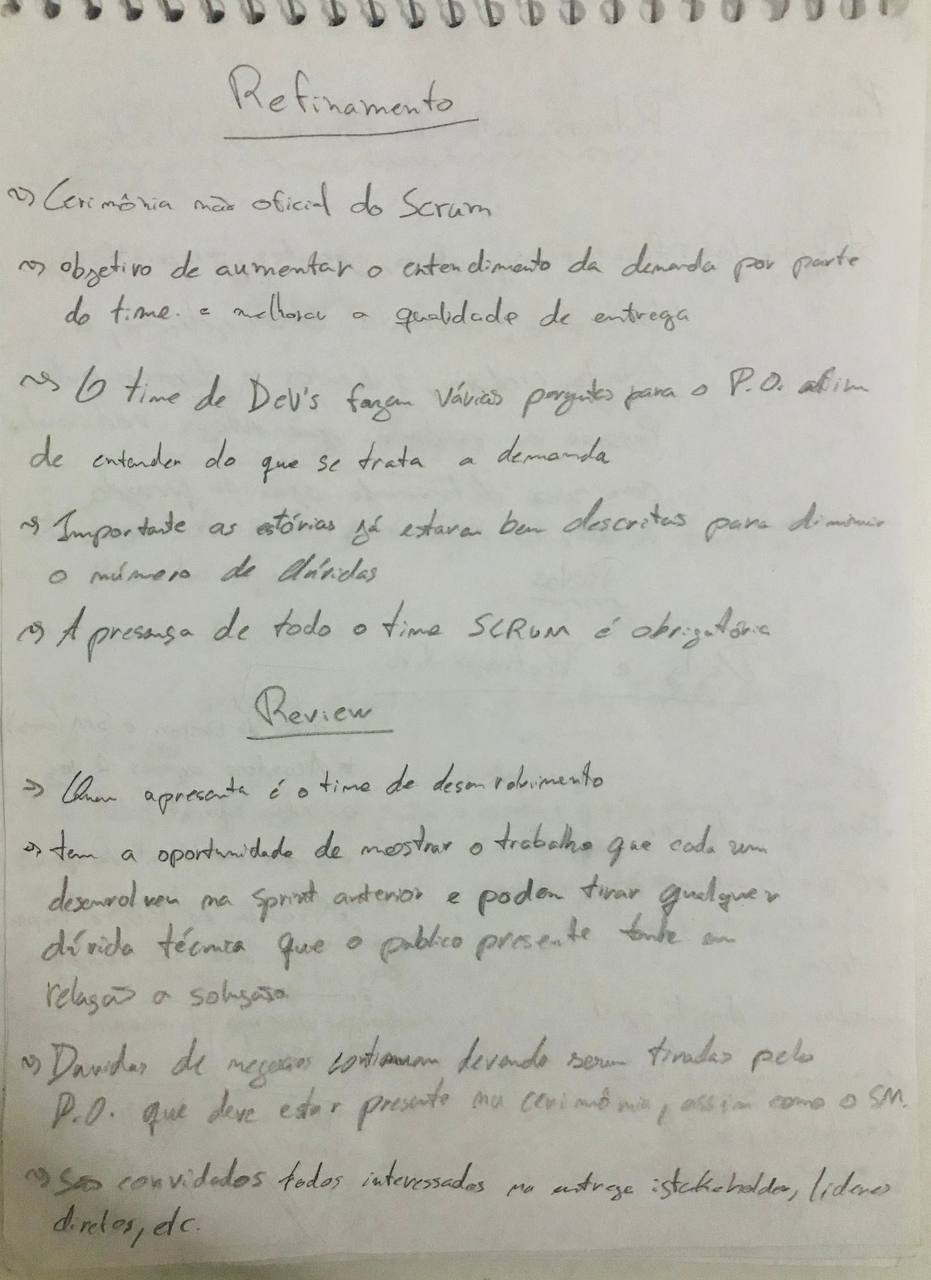 Refinamento
~> Cerimônia não oficial do Scrum
~> objetivo de aumentar o entendimento da demanda por parte
do time. e melhorar a qualidade de entrega
~> O time de Dev's fazem várias perguntas para o P.O. afim
de entender do que se trata a demanda
~> Importante as estórias já estarem bem descritas para diminuir
o número de dúvidas
~> A presensa de todo o time SCRUM é obrigatória
Review
=> Quem apresenta é o time de desenvolvimento
~> tem a oportunidade de mostrar o trabalho que cada um
desenvolveu na sprint anterior e podem tirar qualquer
dúvida técnica que o publico presente em
relação a solução
~> Duvidas de negocios continuam devendo serem tiradas pelo
P.O. que deve estar presente na cerimônia, assim como o SM.
~> São convidados todos interessados na entrega , lideres
diretos, etc.